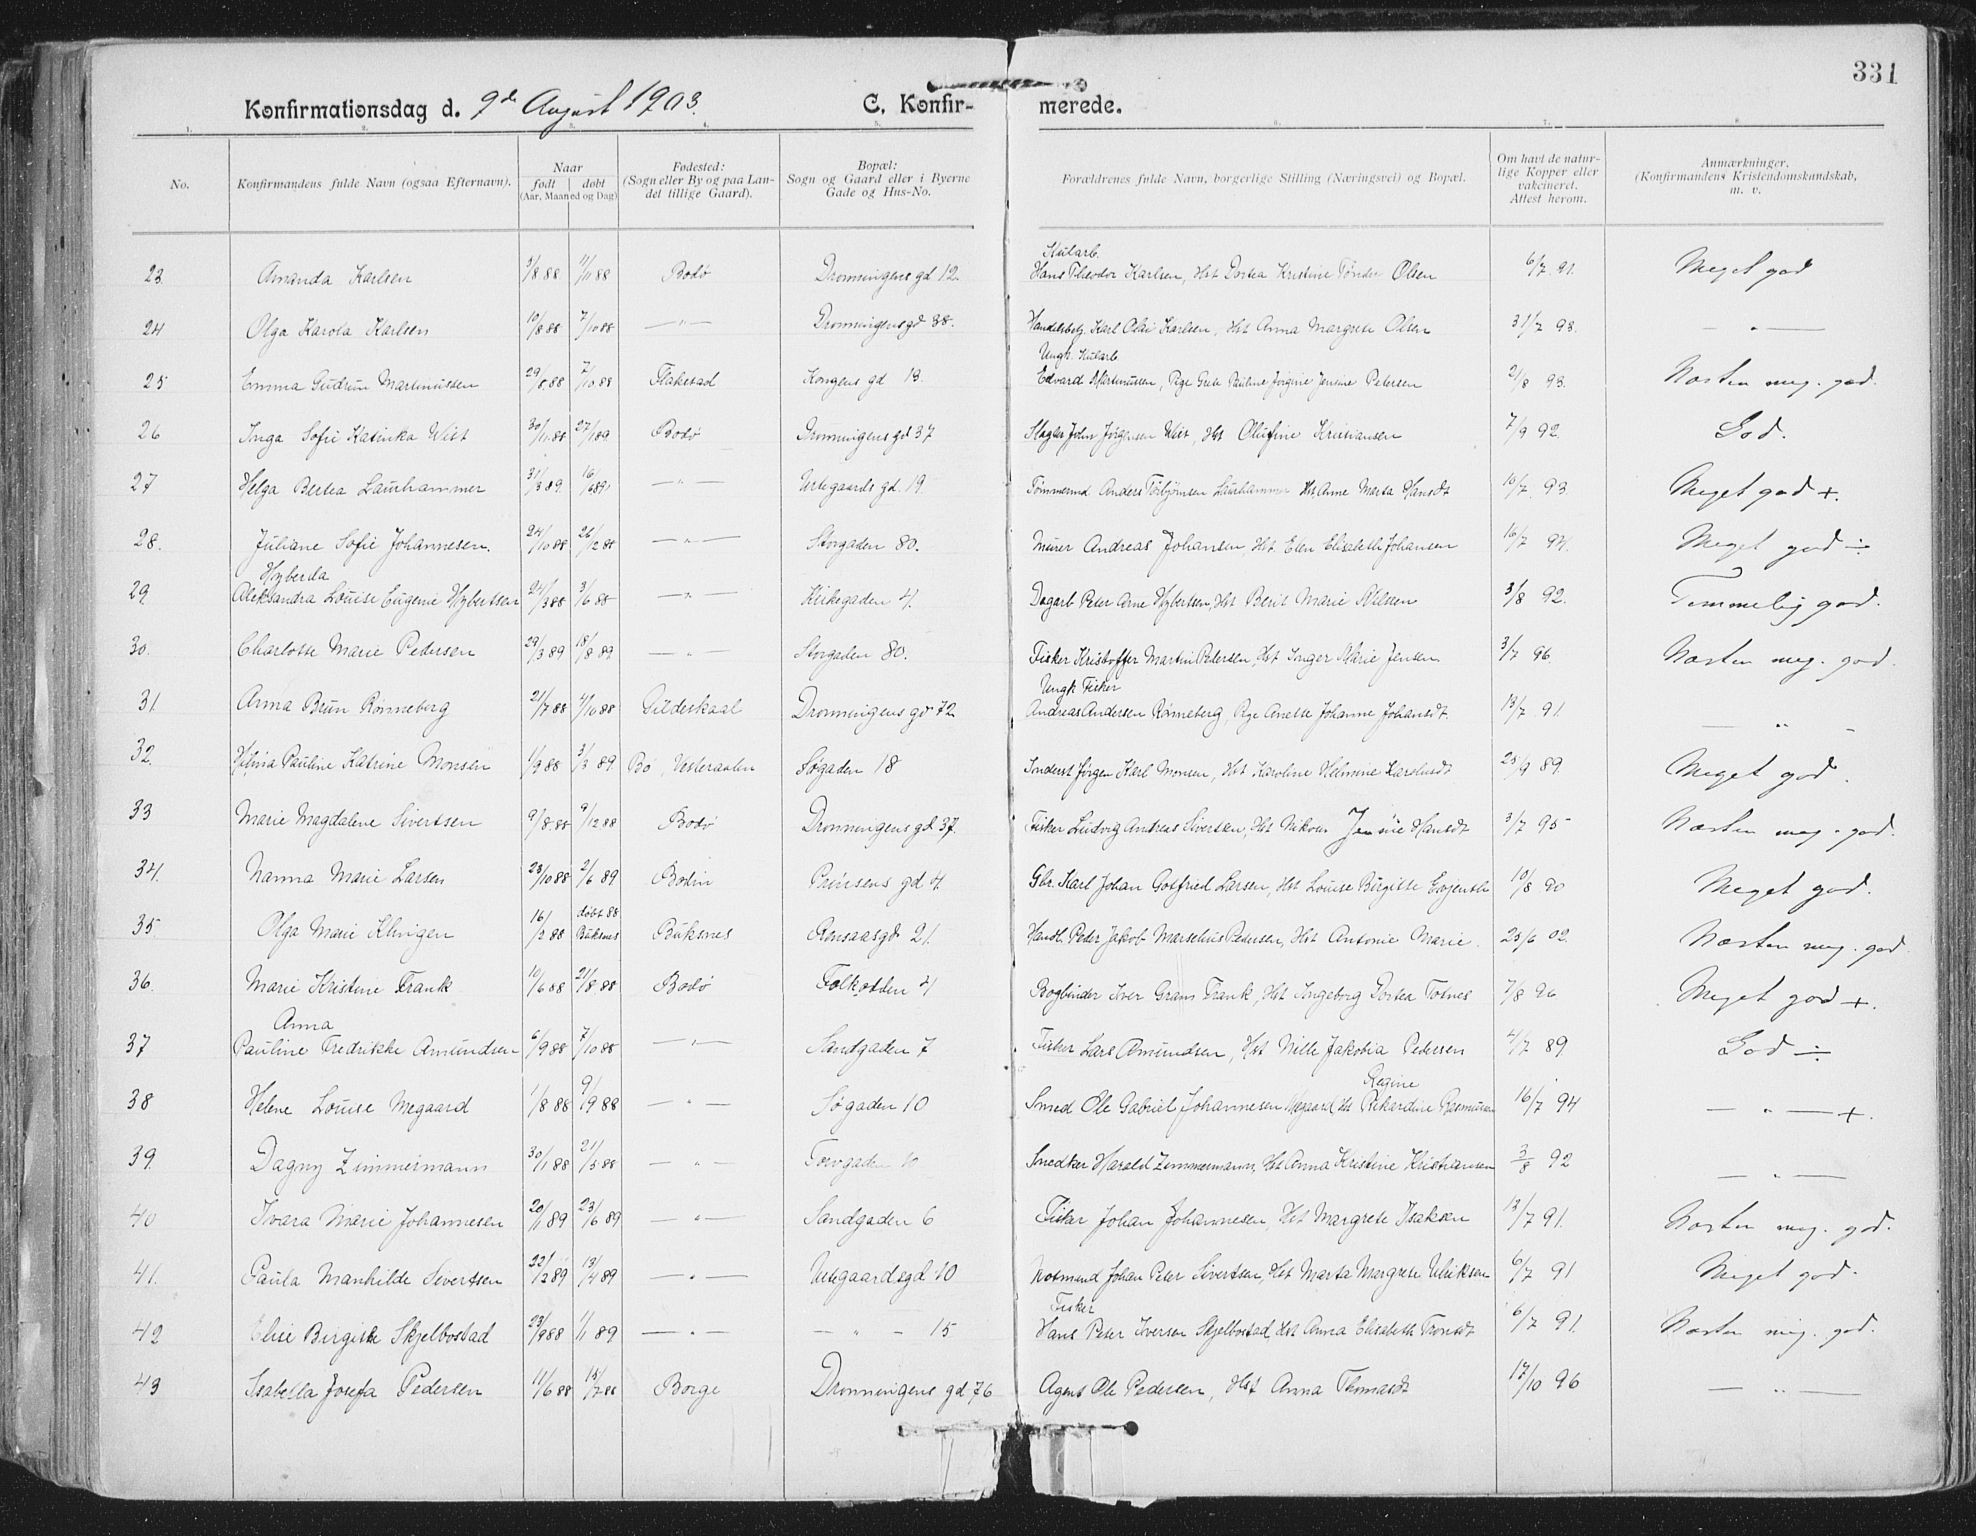 331
Konfirmationsdag d. 9de August 1903. C. Konfirmerede.
1. 2. 3. 4. 5. 6. 7. 8.
No. Konfirmandens fulde Navn (ogsaa Efternavn). Naar født døbt (Aar, Maaned og Dag) Fødested: (Sogn eller By og paa Landet tillige Gaard). Bopæl: Sogn og Gaard eller i Byerne Gade og Hus-No. Forældrenes fulde Navn, borgerlige Stilling (Næringsvei) og Bopæl. Om havt de naturlige Kopper eller vakcineret. Attest herom. Anmærkninger. (Konfirmandens Kristendomskundskab, m. v.
23. Amanda Karlsen 3/8 88 11/11 88 Bodø Dronningens gd 12. Kularb. Hans Theodor Karlsen, Hst Dortea Kristine Tønder Olsen 6/7 91. Meget god
24 Olga Karola Karlsen 10/8 88 7/10 88 — " — Dronningens gd 38. Handelsbetj. Karl Olai Karlsen, Hst Anna Margrete Olsen 31/7 93. — " —
25 Emma Gudrun Martinussen 29/8 88 7/10 88 Flakstad Kongens gd 13. Ungk. Kularb Edvard Martinussen, Pige Grete Pauline Jorgine Jensine Petersen 2/8 93. Næsten meg. god.
26 Inga Sofie Katinka Wist 30/11 88 27/1 89 Bodø Dronningens gd 37 Slagter John Jørgensen Wist, Hst Olufine Kristiansen 7/9 92. God.
27 Helga Bertea Laurhammer 31/3 89. 16/6 89 — " — Urtegaards gd. 19. Tømmermd. Anders Torbjørnsen Laurhammer Hst Anne Marta Hansdt 10/7 93 Meget god +.
28. Juliane Sofie Johannesen. 24/10 88 26/12 88 — " — Storgaden 80. Murer Andreas Johansen, Hst Elen Elisabeth Johansen 16/7 94. Meget god ÷
29 Hyberda Aleksandra Louise Eugenie Hybertsen 24/3 88 3/6 88 — " — Kirkegaden 4. Dagarb Peter Arne Hybertsen, Hst Berit Marie Nilssen 3/8 92. Temmelig god.
30. Charlotte Marie Pedersen 29/3 89 18/8 89 — " — Storgaden 80. Fisker Kristoffer Martin Pedersen, Hst Inger Marie Jensen 3/7 96. Næsten meg. god.
31. Anna Brun Rønneberg 21/7 88 4/10 88 Gildeskaal Dronningens gd 72 Ungk Fisker Andreas Andersen Rønneberg, Pige Anette Johanne Johansdt. 13/7 91. — " —
32. Helmina Pauline Katrine Monsen 1/9 88 3/3 89 Bø, Vesteraalen Søgaden 18 Inderst Jørgen Karl Monsen, Hst Karoline Helmine Karolusdt 25/9 89. Meget god.
33 Marie Magdalene Sivertsen 9/8 88 9/12 88 Bodø Dronningens gd 37. Fisker Ludvig Andreas Sivertsen, Hst Nikoline Jensine Hansdt 3/7 95 Næsten meg. god.
34. Nanna Marie Larsen 23/10 88 2/6 89 Bodin Prinsens gd 4. Gbr. Karl Johan Gotfried Larsen, Hst Louise Birgitte 10/8 90 Meget god.
35 Olga Marie Klivigen 16/2 88 døbt 88 Buksnes Buksnes Rønsaasgd 21. Handl. Peder Jakob Marselius Pedersen, Hst Antonie Marie. 25/6 02. Næsten meg. god
36. Marie Kristine Frank 10/6 88 21/8 88 Bodø Folkodden 4 Bogbinder Iver Grans Frank, Hst Ingeborg Dortea Fosnes 7/8 96 Meget god +.
37 Anna Pauline Fredrikke Amundsen 6/9 88 7/10 88 — " — Sandgaden 7 Fisker Lars Amundsen, Hst Nille Jakobia Pedersen 4/7 89 God ÷
38 Helene Louise Megaard 1/8 88 9/9 88 — " — Søgaden 10 Smed Ole Gabriel Johannesen Megaard, Hst Regine Rikardine Rasmussen 16/7 94 — " — +.
39. Dagny Zimmermann 30/1 88 21/5 88 — " — Torvgaden 10 Snedker Harald Zimmermann, Hst Anna Kristine Kristiansen 3/8 92 — " —
40 Ivara Marie Johannesen 20/1 89 23/6 89 — " — Sandgaden 6 Fisker Johan Johannesen, Hst Margrete Isaksen 13/7 91. Næsten meg. god.
41. Paula Manhilde Sivertsen 22/2 89 13/4 89 — " — Urtegaardsgd 10 Notmand Johan Peter Sivertsen, Hst Marta Margrete Ulriksen 6/7 91 Meget god.
42 Elise Birgitte Skjelbostad 23/9 88 1/1 89 — " — — " — 15 Fisker Hans Peter Iversen Skjelbostad, Hst Anna Elisabeth Tronsdt 6/7 91. Næsten meg. god.
43 Isabella Josefa Pedersen 11/6 88 15/7 88 Borge Dronningens gd 76 Agent Ole Pedersen, Hst Anna Thomasdt 17/10 96 — " —